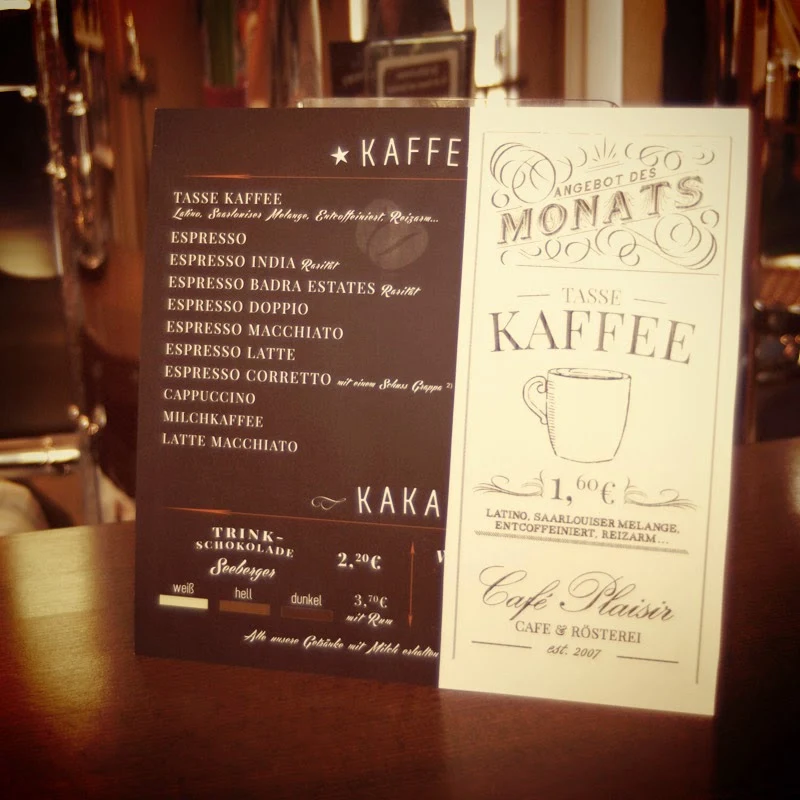 ★ KAFFE
TASSE KAFFEE
Latino, Saarlouiser Melange, Entcoffeiniert, Reizarm...
ESPRESSO
ESPRESSO INDIA Rarität
ESPRESSO BADRA ESTATES Rarität
ESPRESSO DOPPIO
ESPRESSO MACCHIATO
ESPRESSO LATTE
ESPRESSO CORRETTO mit einem Schuss Grappa 2)
CAPPUCCINO
MILCHKAFFEE
LATTE MACCHIATO
KAKA
TRINK-
SCHOKOLADE
Seeberger
2,20€
weiß hell dunkel
3,70€
mit Rum
Alle unsere Getränke mit Milch erhalten
ANGEBOT DES
MONATS
TASSE
KAFFEE
1,60€
LATINO, SAARLOUISER MELANGE,
ENTCOFFEINIERT, REIZARM...
Café Plaisir
CAFE & RÖSTEREI
est. 2007